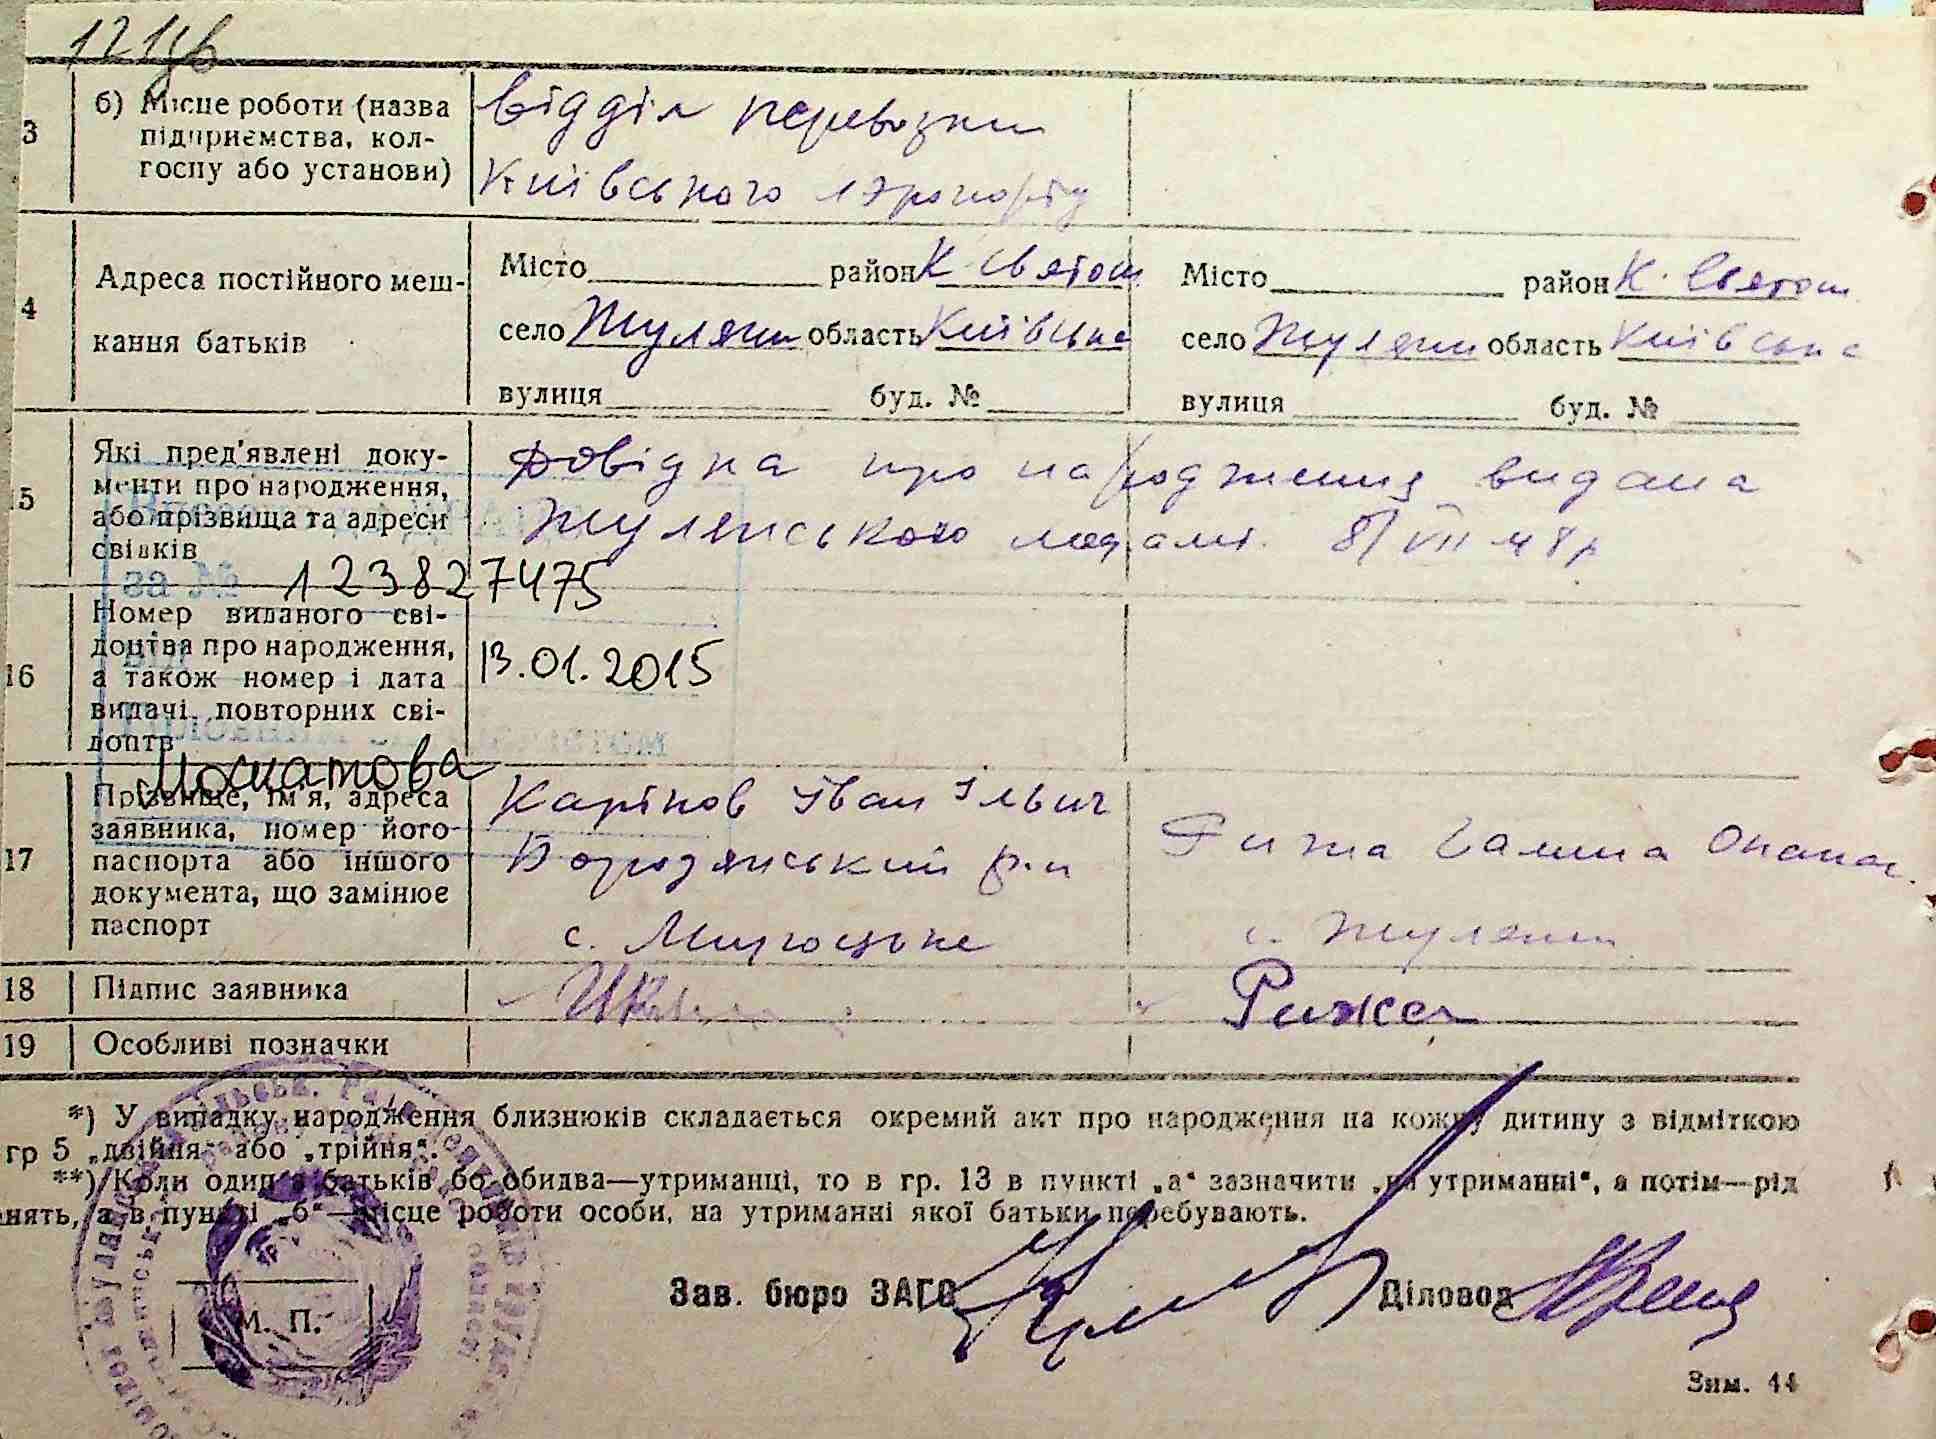 3 б) Місце роботи (назва
підприємства, кол-
госпу або установи)
відділ перевозки
Київського аэропорту
4 Адреса постійного меш-
кання батьків
Місто район К. Святош
село Жуляни область Київська
вулиця буд. №
Місто район К. Святош
село Жуляни область Київська
вулиця буд. №
15 Які пред'явлені доку-
менти про народження,
або прізвища та адреси
свідків
Довідка про народження видана
Жулянського 8/VII 48 р
за № 123827475
16 Номер виданого сві-
доцтва про народження,
а також номер і дата
видачі повторних сві-
доцтв
13.01.2015
17 Прізвище, ім'я, адреса
заявника, номер його
паспорта або іншого
документа, що замінює
паспорт
Карпов Іван Ільич
Бородянський р-н
с. Мироцьке
Рижа Галина Опанас.
с. Жуляни
18 Підпис заявника
Рижа
19 Особливі позначки
*) У випадку народження близнюків складається окремий акт про народження на кожну дитину з відміткою
гр 5 „двійня" або „трійня".
**) Коли один з батьків бо обидва—утриманці, то в гр. 13 в пункті „а" зазначити „на утриманні", а потім—рід
нять, а в пункті „б"—місце роботи особи, на утриманні якої батьки перебувають.
М. П.
Зав. бюро ЗАГС
Діловод
Зим. 44